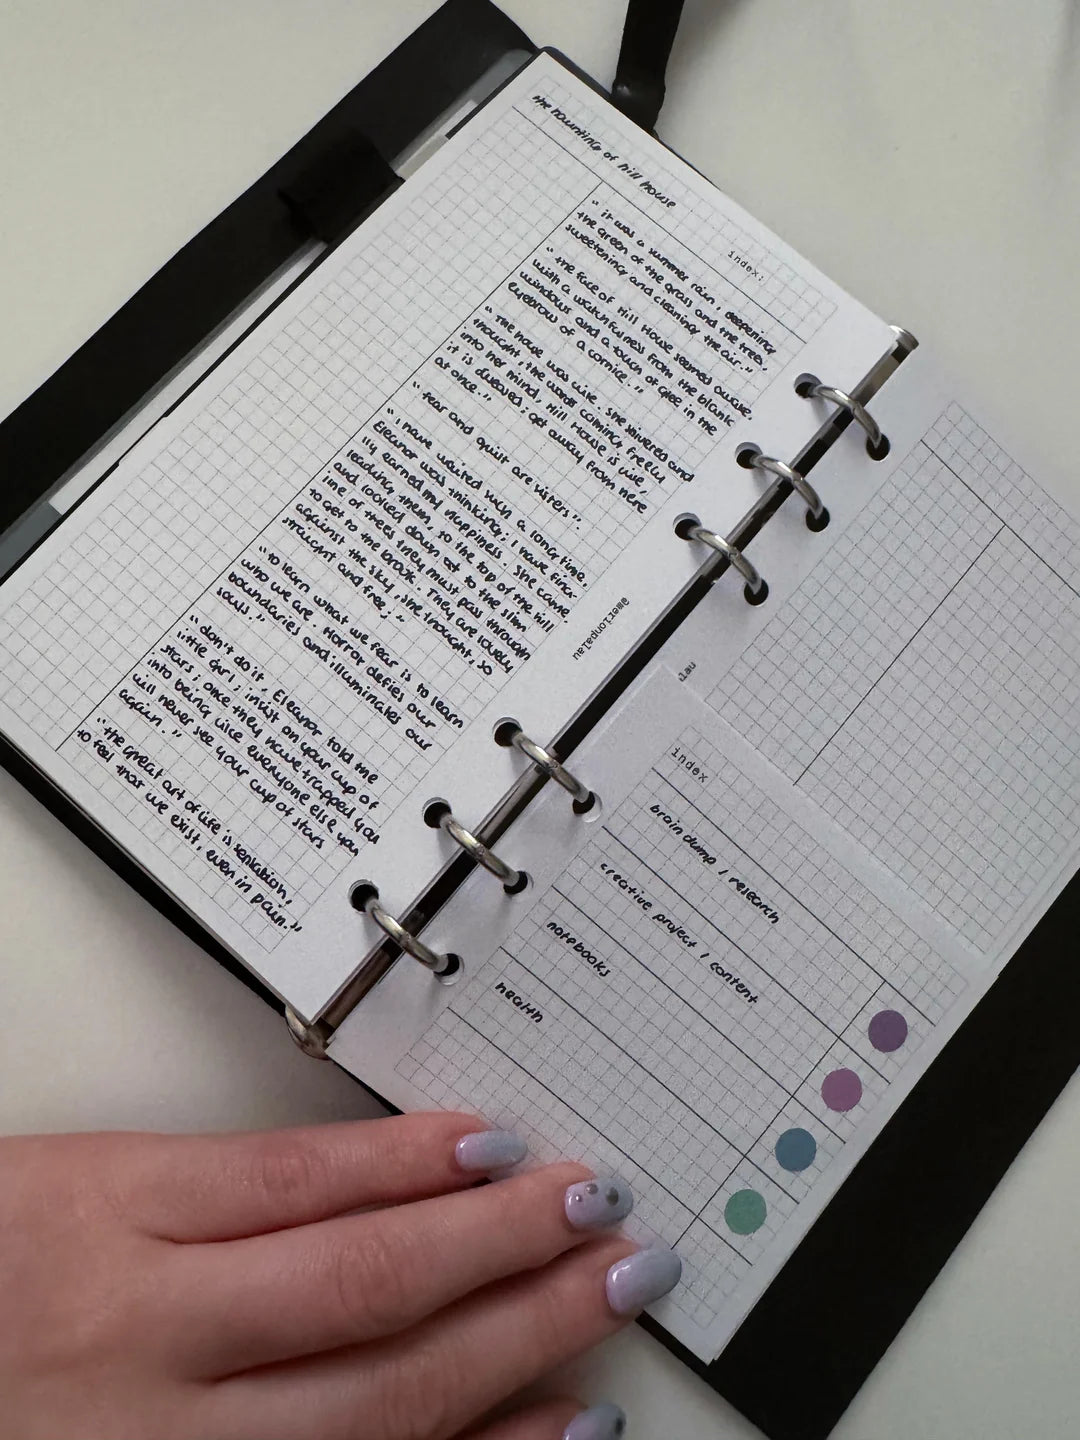 the haunting of hill house
index:
" it was a summer rain, deepening
the green of the grass and the trees,
sweetening and cleaning the air."
" the face of Hill House seemed awake,
with a watchfulness from the blank
windows and a touch of glee in the
eyebrow of a cornice."
" The house was vile. She shivered and
thought, the words coming freely
into her mind, Hill House is vile,
it is diseased; get away from here
at once."
" fear and guilt are sisters".
" I have waited such a long time,
Eleanor was thinking; I have final
lly earned my happiness. She came,
leading them, to the top of the hill
and looked down at to the slim
line of trees they must pass through
to get to the brook. They are lovely
against the sky, she thought, so
straight and free;"
"to learn what we fear is to learn
who we are. Horror defies our
boundaries and illuminates our
souls."
"don't do it, Eleanor told the
little girl; insist on your cup of
stars; once they have trapped you
into being like everyone else you
will never see your cup of stars
again."
"the great art of life is sensation,
to feel that we exist, even in pain."
@merlonpalau
lau
index
brain dump / research
creative project / content
notebooks
health